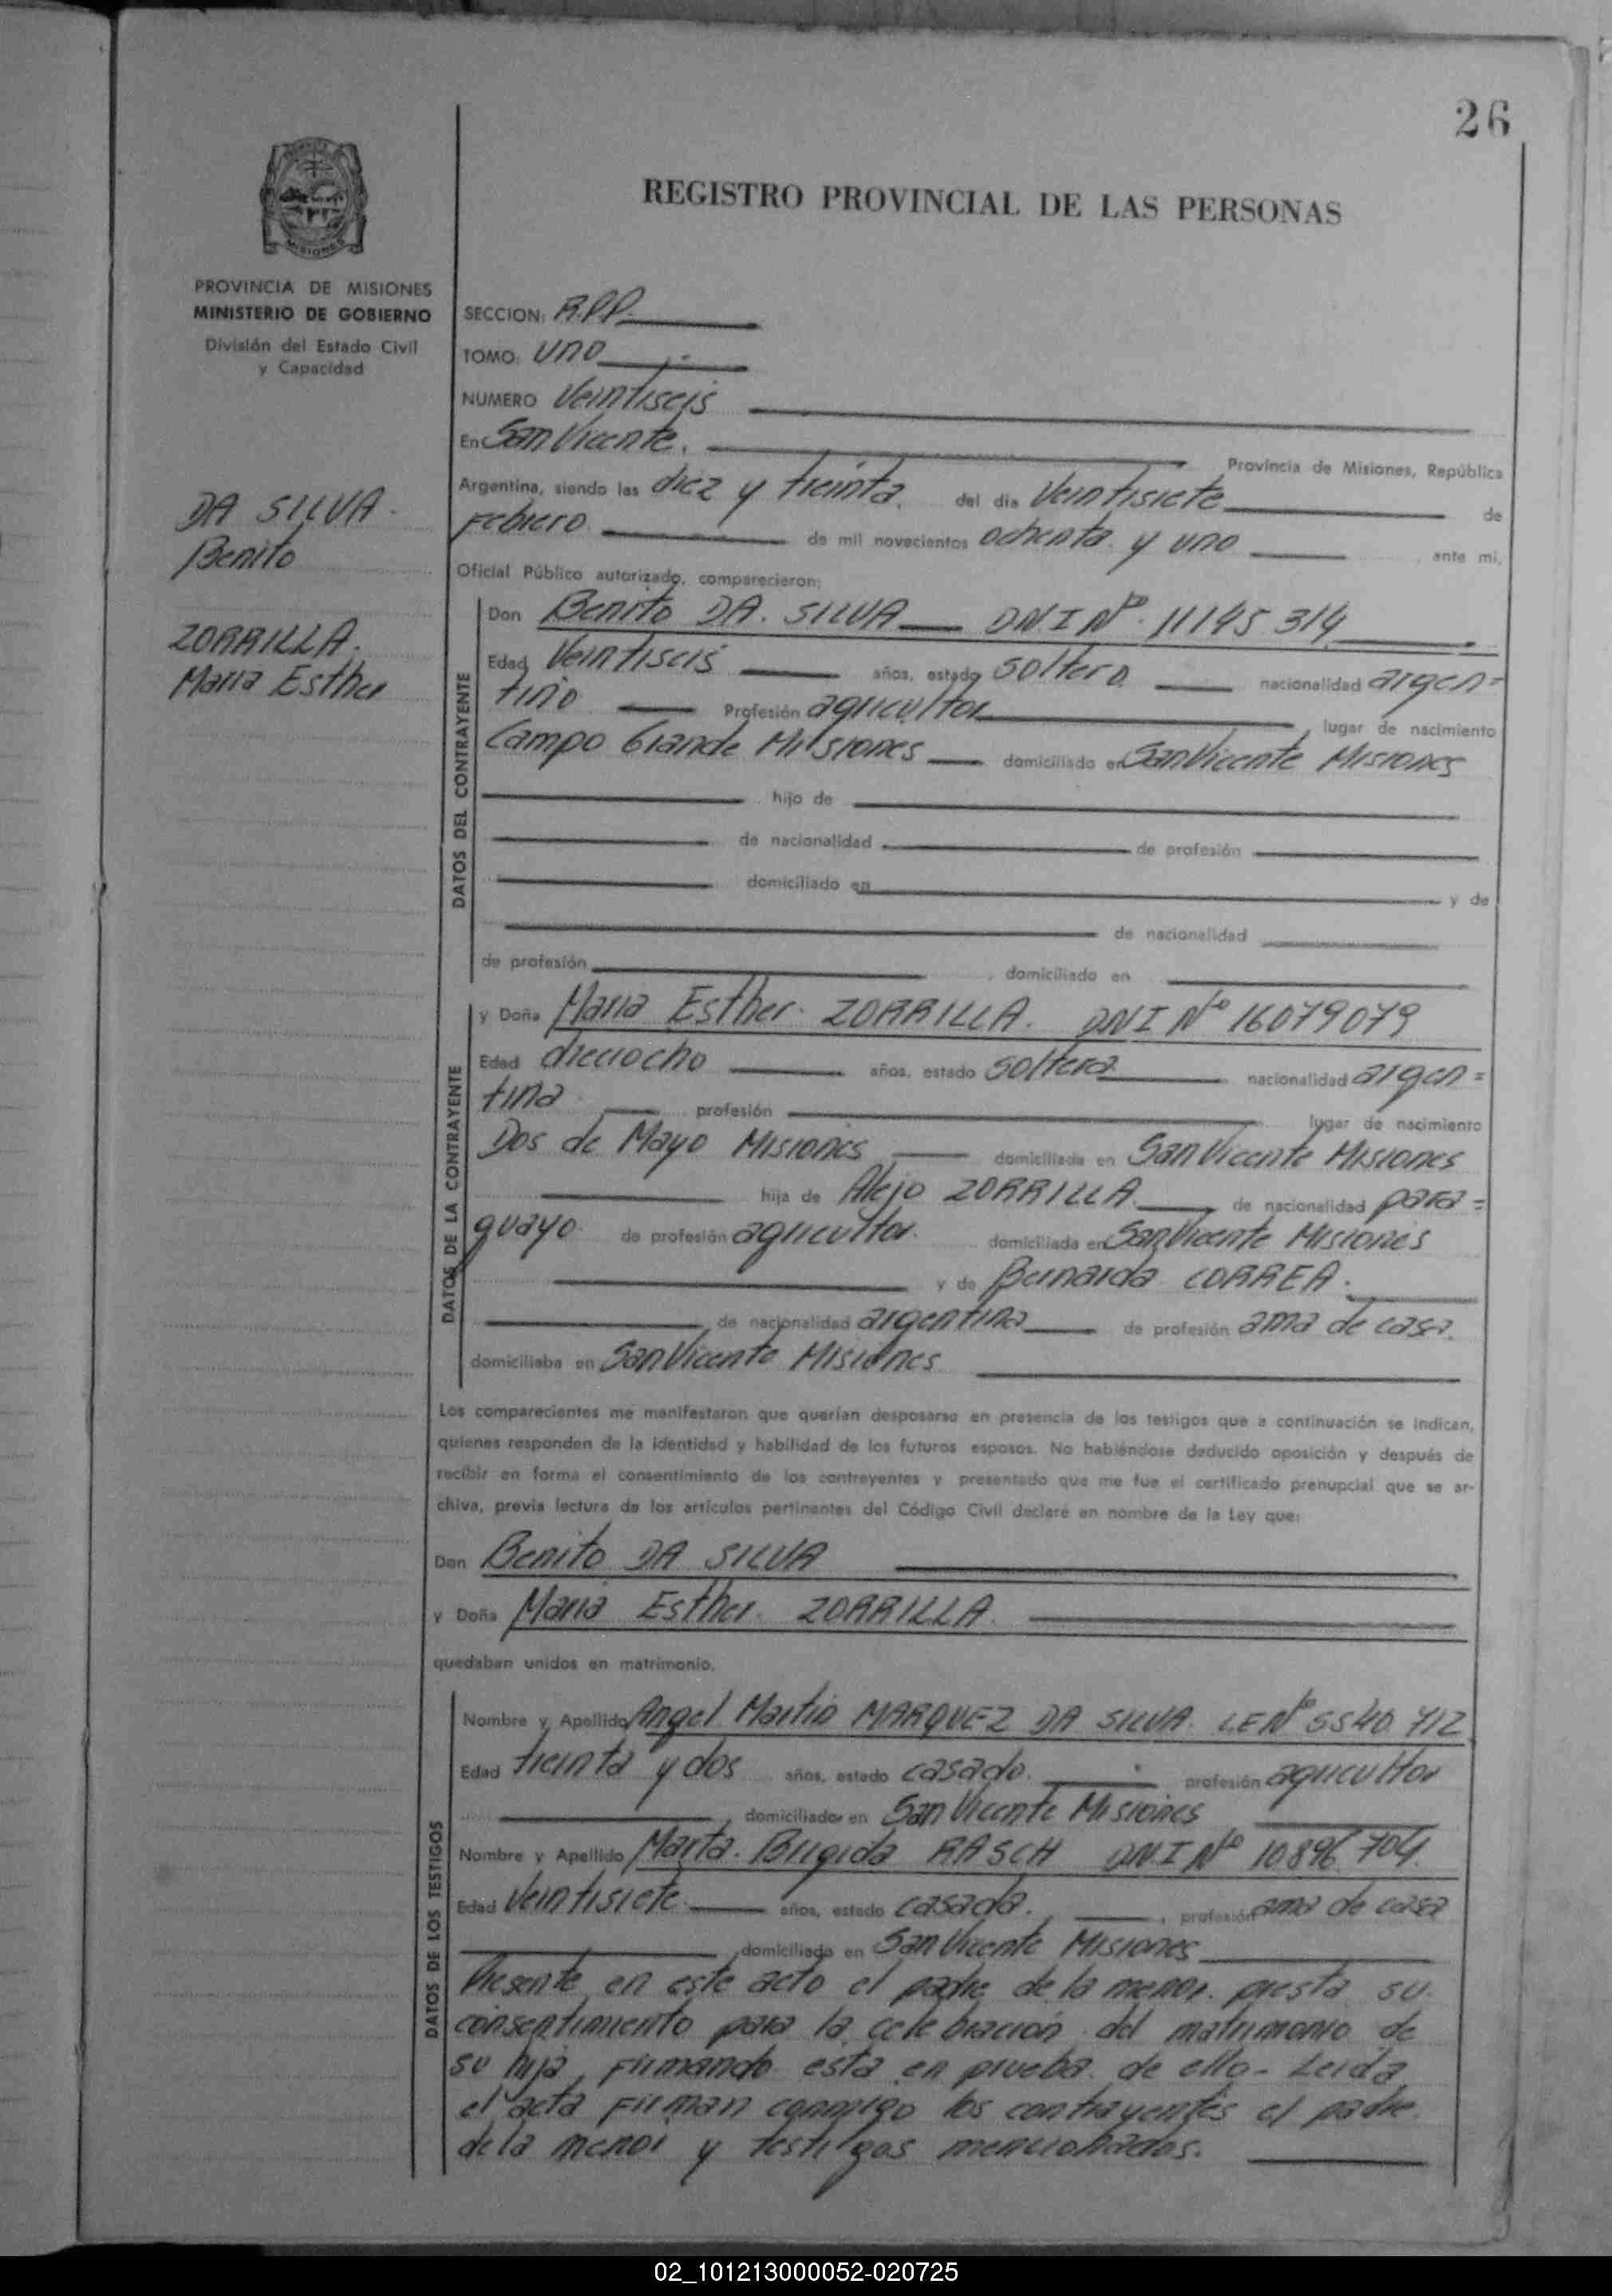 26
REGISTRO PROVINCIAL DE LAS PERSONAS
MISIONES
PROVINCIA DE MISIONES
MINISTERIO DE GOBIERNO
División del Estado Civil
y Capacidad
DA SILVA
Benito
ZORRILLA.
Maria Esther
SECCION: R.P.P.
TOMO: uno
NUMERO Veintiseis
En San Vicente. Provincia de Misiones, República
Argentina, siendo las diez y treinta. del día Veintisiete de
Febrero de mil novecientos ochenta y uno ante mi,
Oficial Público autorizado, comparecieron:
DATOS DEL CONTRAYENTE
Don Benito DA. SILVA DNI Nº 11145 314
Edad Veintiseis años, estado soltero nacionalidad argen=
tino Profesión agricultor, lugar de nacimiento
Campo Grande Misiones domiciliado en San Vicente Misiones
hijo de
de nacionalidad de profesión
domiciliado en y de
de nacionalidad
de profesión domiciliado en
DATOS DE LA CONTRAYENTE
y Doña Maria Esther ZORRILLA. DNI Nº 16079079
Edad dieciocho años, estado soltera nacionalidad argen=
tina profesión lugar de nacimiento
Dos de Mayo Misiones domiciliada en San Vicente Misiones
hija de Alejo ZORRILLA de nacionalidad para=
guayo de profesión agricultor. domiciliada en San Vicente Misiones
y de Bernarda CORREA.
de nacionalidad argentina de profesión ama de casa.
domiciliaba en San Vicente Misiones
Los comparecientes me manifestaron que querían desposarse en presencia de los testigos que a continuación se indican,
quienes responden de la identidad y habilidad de los futuros esposos. No habiéndose deducido oposición y después de
recibir en forma el consentimiento de los contrayentes y presentado que me fue el certificado prenupcial que se ar-
chiva, previa lectura de los artículos pertinentes del Código Civil declaré en nombre de la Ley que:
Don Benito DA SILVA
y Doña Maria Esther. ZORRILLA.
quedaban unidos en matrimonio.
DATOS DE LOS TESTIGOS
Nombre y Apellido Angel Martin MARQUEZ DA SILVA. LE Nº 5540 712
Edad treinta y dos años, estado casado. profesión agricultor
domiciliados en San Vicente Misiones
Nombre y Apellido Marta. Brigida RASCH DNI Nº 10.896 704.
Edad Veintisiete años, estado casada. profesión ama de casa
domiciliado en San Vicente Misiones
Presente en este acto el padre de la menor. presta su
consentimiento para la celebracion del matrimonio de
su hija, Firmando esta en prueba de ello- Leida
el acta Firman conmigo los contrayentes el padre
de la menor y testigos mencionados.
02_101213000052-020725